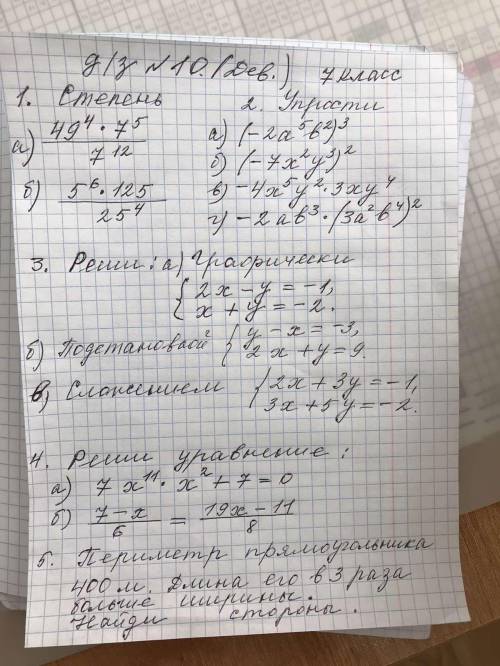 д/з №10. (Дев.) 7 класс
1. Степень 2. Упрости
а) 49⁴ · 7⁵ / 7¹² а) (-2a⁵b²)³
б) (-7x²y³)²
б) 5⁶ · 125 / 25⁴ в) -4x⁵y² · 3xy⁴
г) -2ab³ · (3a²b⁴)²
3. Реши: а) Графически
{ 2x - y = -1,
x + y = -2.
б) Подстановкой { y - x = -3,
2x + y = 9.
в) Сложением { 2x + 3y = -1,
3x + 5y = -2.
4. Реши уравнение:
а) 7x¹¹ · x² + 7 = 0
б) 7 - x / 6 = 19x - 11 / 8
5. Периметр прямоугольника
400 м. Длина его в 3 раза
больше ширины.
Найди стороны.